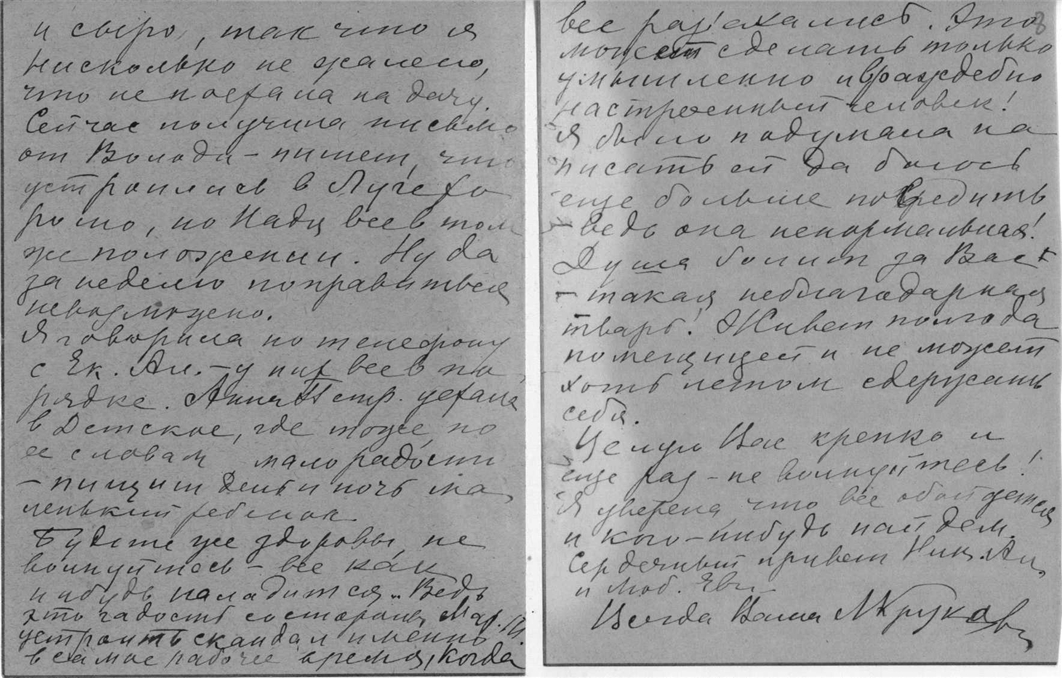 и сыро, так что я
нисколько не жалею,
что не поехала на дачу.
Сейчас получила письмо
от Володи – пишет, что
устроились в Луге хо
рошо, но Надя все в том
же положении. Ну да
за неделю поправиться
невозможно.
Я говорила по телефону
с Ек. Ал. – у них все в по
рядке. Анна Петр. уехала
в Детское, где тоже, по
ее словам мало радости
– пищит день и ночь ма
ленький ребенок.
Будьте же здоровы, не
волнуйтесь – все как
нибудь наладится. Ведь
это гадость со стороны Мар.
устроить скандал именно
в самое рабочее время, когда
все разъехались. Это
может сделать только
умышленно и враждебно
настроенный человек!
Я было подумала на
писать ей да боюсь
еще больше повредить
– ведь она ненормальная!
Душа болит за Вас
– такая неблагодарная
тварь! Живет полгода
помещицей и не может
хоть летом сдержать
себя.
Целую Вас крепко и
еще раз – не волнуйтесь!
Я уверена, что все обойдется
и кого-нибудь найдем.
Сердечный привет Ник. Ан.
и Люб. Евг.
Всегда Ваша М Крукова